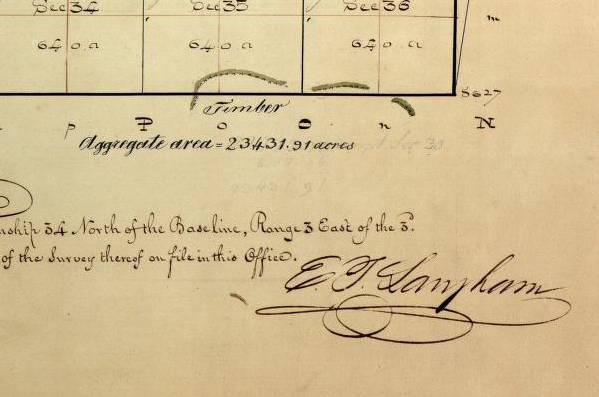 Sec 34 Sec 35 Sec 36
m
640.a 640.a 640.a
8627
Timber
p P o O n N
Aggregate area = 23431.91 acres
nship 34 North of the Baseline, Range 3 East of the 3.P.
of the Survey thereof on file in this Office.
E.T. Langham